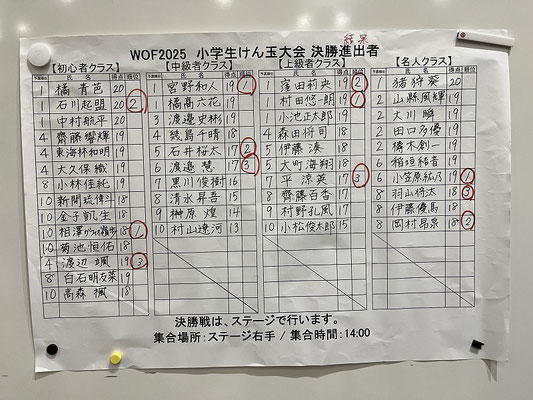 結果
WOF2025 小学生けん玉大会 決勝進出者
【初心者クラス】
予選順位 氏名 得点 順位
1 橘 青芭 20
1 石川起盟 20 2
1 中村航平 20
4 齊藤響輝 19
4 東海林和明 19
4 大久保 織 19
8 小林佳純 19
10 新開琉偉斗 18
10 金子凱生 18
10 相澤 18 1
10 菊池恒佑 18
4 渡辺 颯 19 3
8 白石明友菜 19
10 高森 楓 18
【中級者クラス】
予選順位 氏名 得点 順位
1 宮野和人 19 1
1 橘高六花 19
3 渡邉史彬 19
4 幾島千晴 18
5 石井桜太 17 2
6 渡邉 慧 17 3
7 黒川俊樹 16
8 清水昇吾 15
9 榊原 煌 14
10 村山遼河 13
【上級者クラス】
予選順位 氏名 得点 順位
1 窪田莉央 19 2
1 村田悠一朗 19 1
1 小池正太郎 19
4 森田将司 18
5 伊藤 湊 18
5 大町海翔 18
7 平 涼美 17 3
8 齊藤百香 17
9 村野孔風 17
10 小松俊太郎 15
【名人クラス】
予選順位 氏名 得点 順位
1 猪狩 葵 20
2 山縣風輝 19
2 大川 瞬 19
2 田口多優 19
2 橋本創一 19
6 稲垣結音 19
6 小笠原紘乃 19 1
8 羽山修汰 18 3
8 伊藤優馬 18
8 岡村昂泉 18 2
決勝戦は、ステージで行います。
集合場所：ステージ右手 / 集合時間：14:00